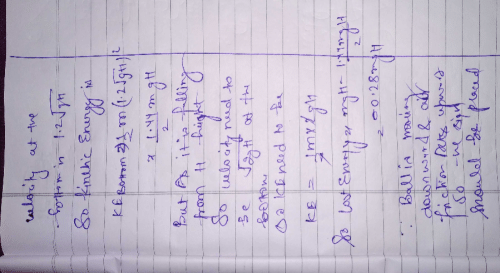 velocity at the
bottom is 1.2√gH
So kinetic Energy is
KE Bottom = 1/2 m (1.2√gH)²
1.44 mgH
2
But As it is falling
from H height
So velocity need to
be √2gH at the
bottom
So KE need to be
KE = 1/2 m x 2gH
So Lost Energy = mgH - 1.44mgH/2
= 0.28mgH
∵ Ball is moving
downward & air
friction acts upward
So -ve sign
should be placed